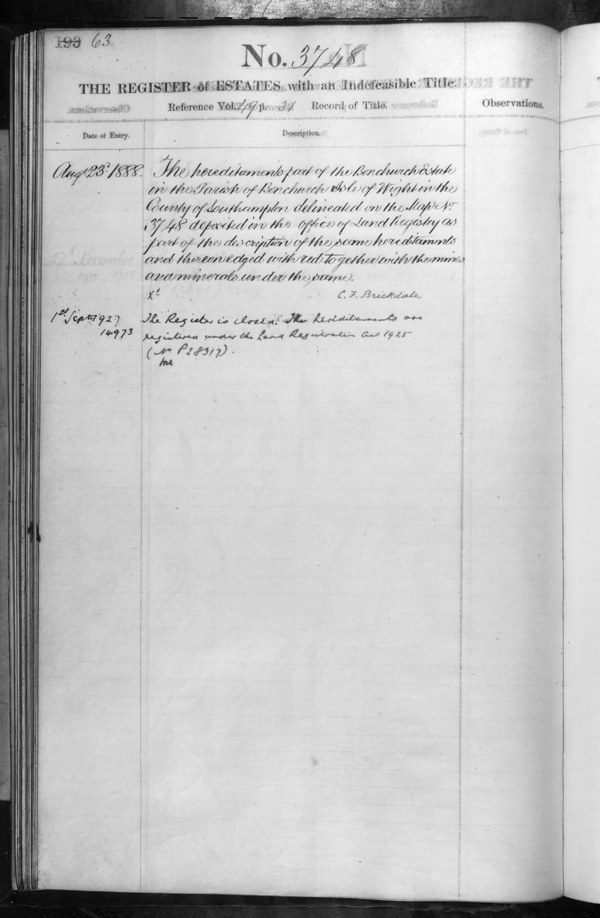 193 63.
No. 3748
THE REGISTER of ESTATES with an Indefeasible Title.
Reference Vol. 49 p. 31 Record of Title.
Observations.
Date of Entry.
Description.
Augt 23d 1888.
The hereditaments part of the Bonchurch Estate
in the Parish of Bonchurch Isle of Wight in the
County of Southampton delineated on the Map No
3748 deposited in the office of Land Registry as
part of the description of the same hereditaments
and thereon edged with red together with the mines
and minerals under the same.
Xd
C. F. Brickdale
1st Sept 1927
14973
The Register is closed. The hereditaments are
registered under the Land Registration Act 1925
(No P28317).